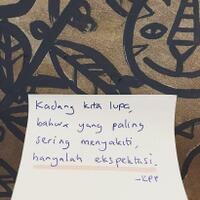 Kadang kita lupa,
bahwa yang paling
sering menyakiti,
hanyalah ekspektasi.